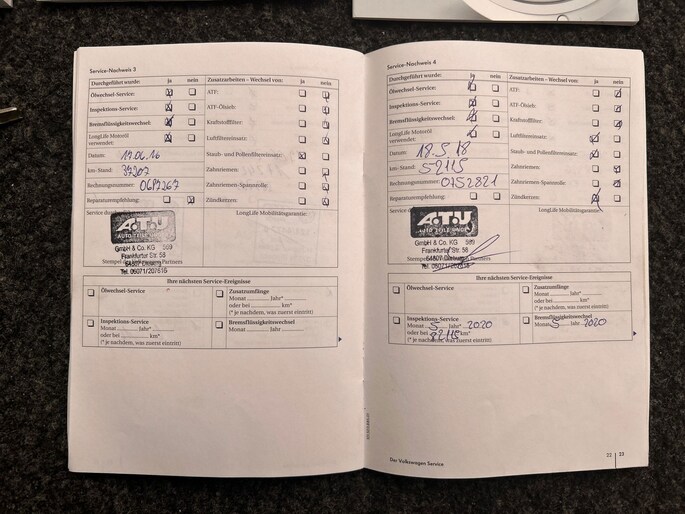 Service-Nachweis 3
Durchgeführt wurde: ja nein
Ölwechsel-Service:
Inspektions-Service:
Bremsflüssigkeitswechsel:
LongLife Motoröl
verwendet:
Datum: 17.06.16
km-Stand: 37207
Rechnungsnummer: 0697267
Reparaturempfehlung:
Zusatzarbeiten – Wechsel von: ja nein
ATF:
ATF-Ölsieb:
Kraftstofffilter:
Luftfiltereinsatz:
Staub- und Pollenfiltereinsatz:
Zahnriemen:
Zahnriemen-Spannrolle:
Zündkerzen:
LongLife Mobilitätsgarantie:
A.T.U
AUTO TEILE UNGER
GmbH & Co. KG 589
Frankfurter Str. 58
Tel. 06071/207615
Ihre nächsten Service-Ereignisse
Ölwechsel-Service
Zusatzumfänge
Monat ........ Jahr* ........
oder bei ........ km*
(* je nachdem, was zuerst eintritt)
Inspektions-Service
Monat ........ Jahr* ........
oder bei ........ km*
(* je nachdem, was zuerst eintritt)
Bremsflüssigkeitswechsel
Monat ........ Jahr ........
Service-Nachweis 4
Durchgeführt wurde: ja nein
Ölwechsel-Service:
Inspektions-Service:
Bremsflüssigkeitswechsel:
LongLife Motoröl
verwendet:
Datum: 18.5.18
km-Stand: 52115
Rechnungsnummer: 0752821
Reparaturempfehlung:
Zusatzarbeiten – Wechsel von: ja nein
ATF:
ATF-Ölsieb:
Kraftstofffilter:
Luftfiltereinsatz:
Staub- und Pollenfiltereinsatz:
Zahnriemen:
Zahnriemen-Spannrolle:
Zündkerzen:
LongLife Mobilitätsgarantie:
A.T.U
AUTO TEILE UNGER
GmbH & Co. KG 589
Frankfurter Str. 58
Tel. 06071/207615
Ihre nächsten Service-Ereignisse
Ölwechsel-Service
Zusatzumfänge
Monat ........ Jahr* ........
oder bei ........ km*
(* je nachdem, was zuerst eintritt)
Inspektions-Service
Monat 5 Jahr* 2020
oder bei 82115 km*
(* je nachdem, was zuerst eintritt)
Bremsflüssigkeitswechsel
Monat 5 Jahr 2020
Der Volkswagen Service
22 | 23